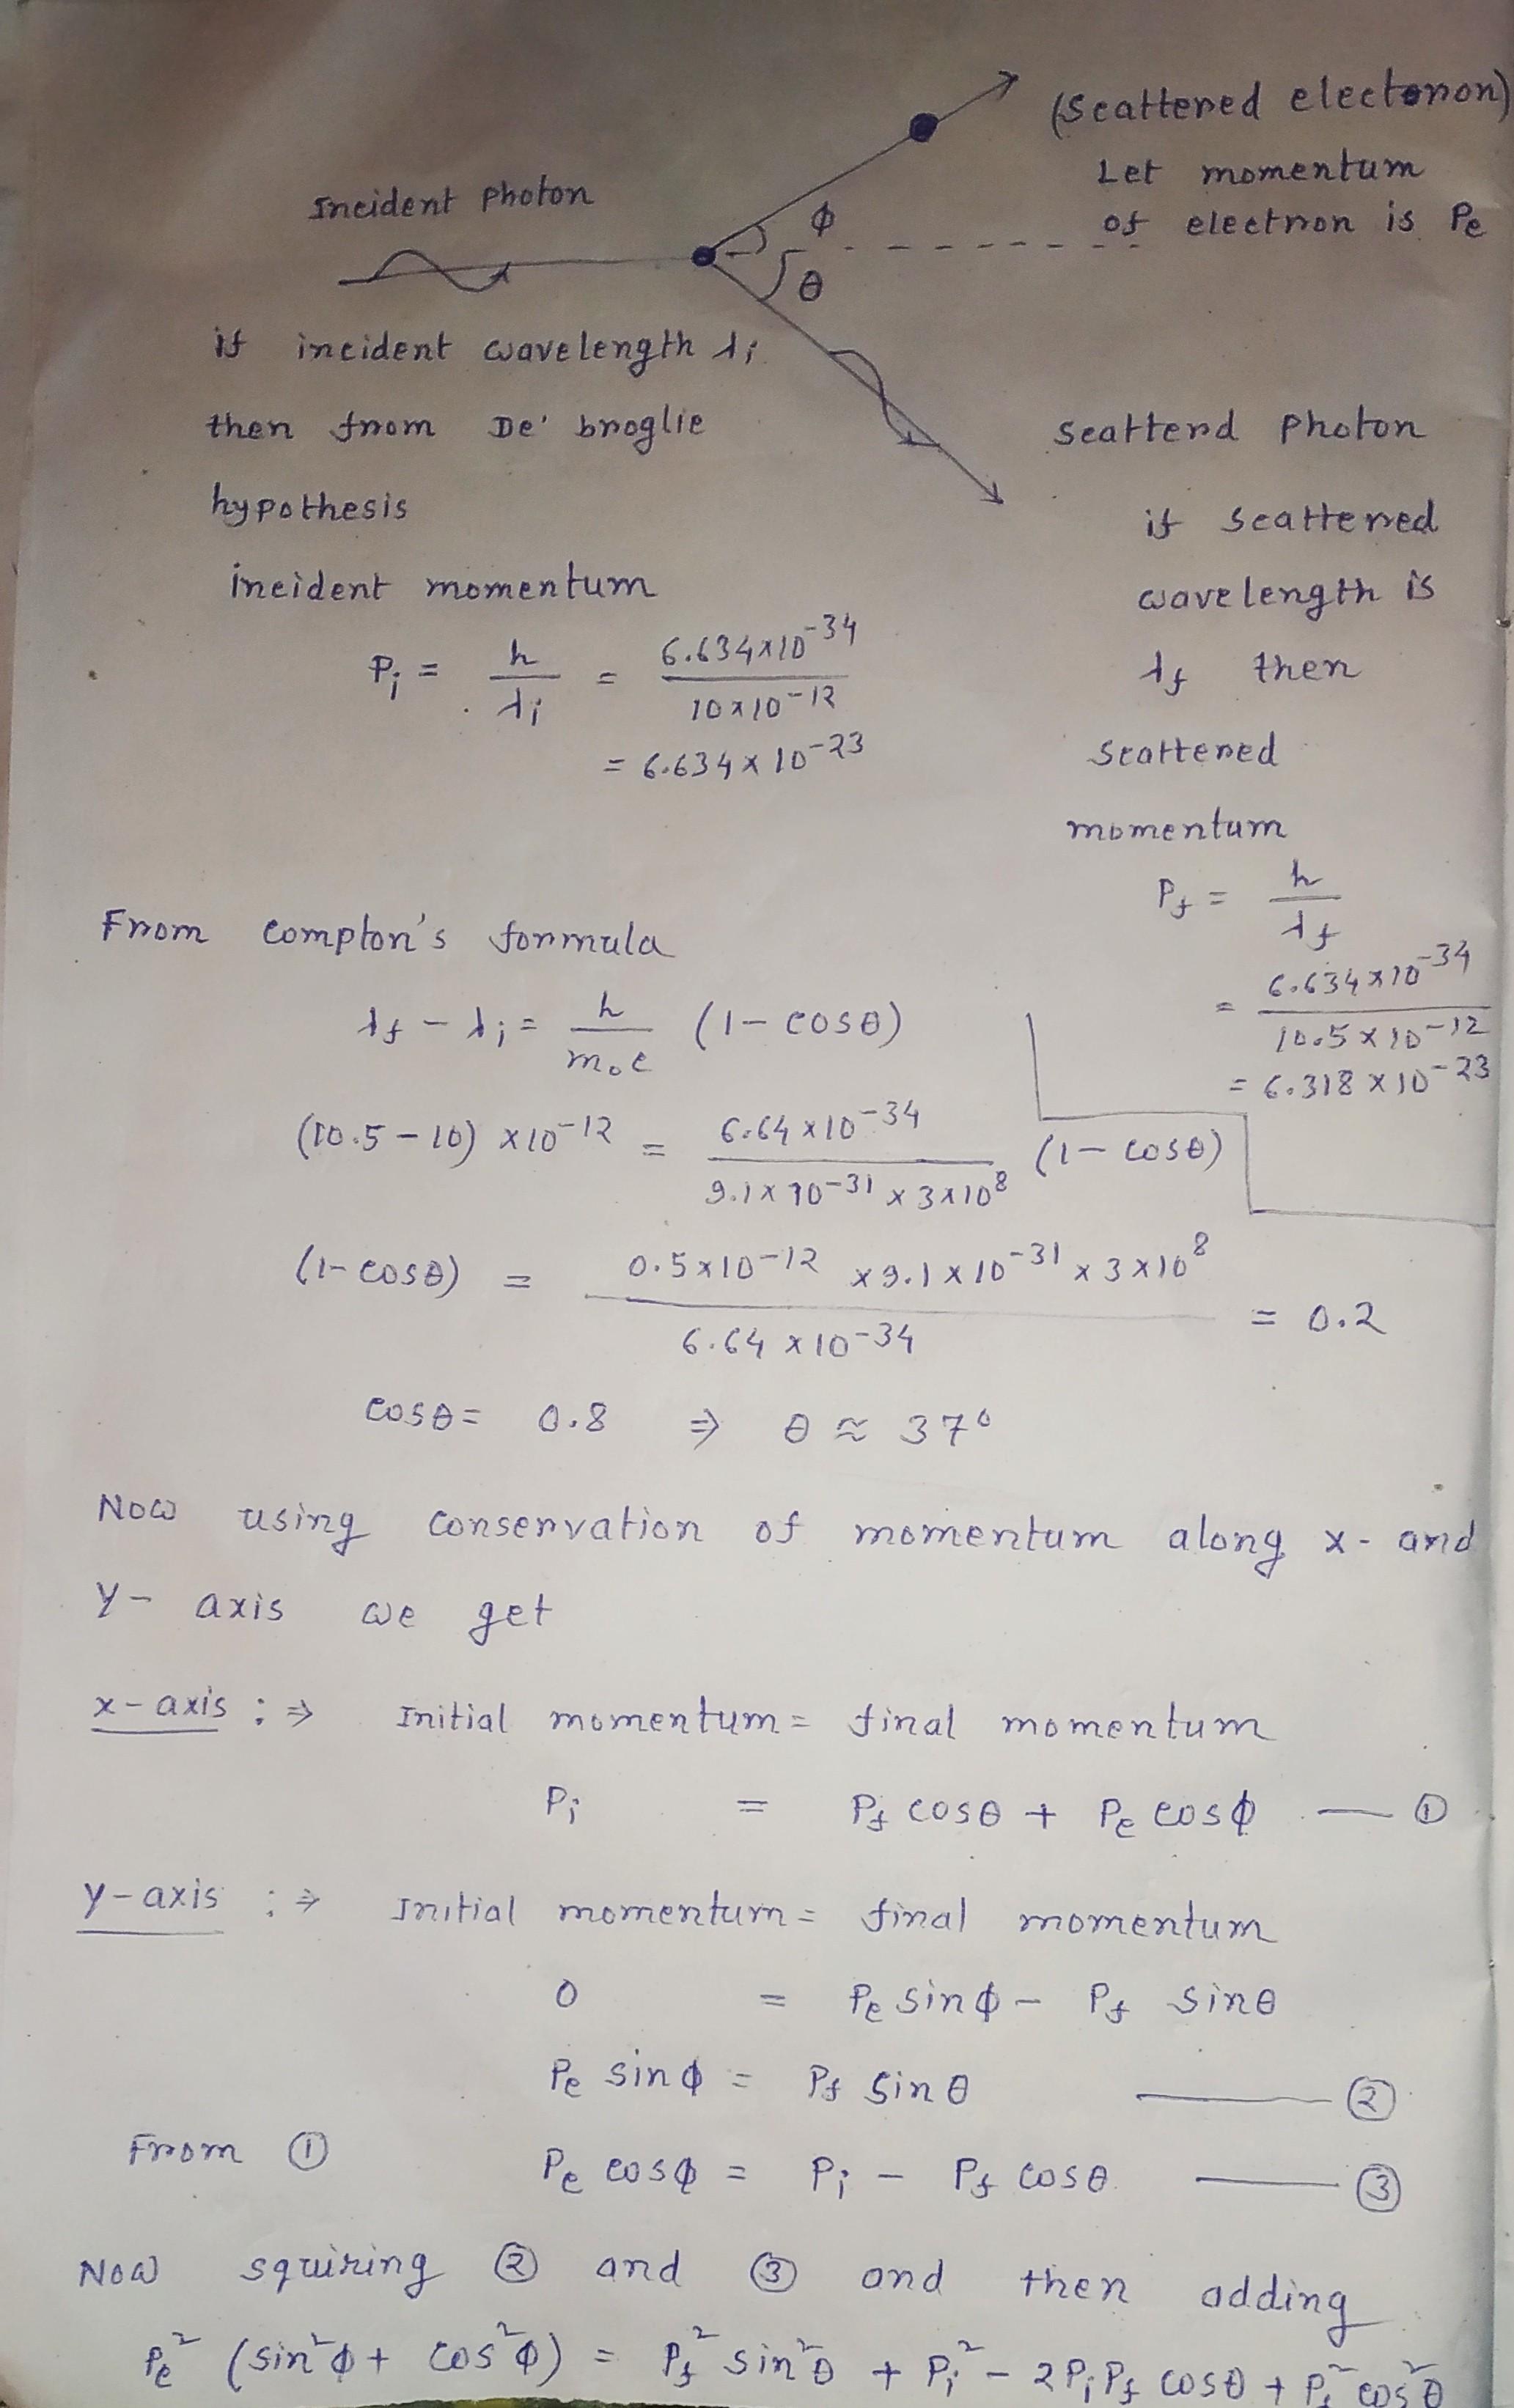 (Scattered electronon)
Let momentum
of electron is Pe
Incident Photon
ϕ
θ
if incident wavelength λi
then from De' broglie
hypothesis
incident momentum
Pi = h/λi = 6.634×10^-34 / 10×10^-12
= 6.634 × 10^-23
Scatterd Photon
if scattered
wavelength is
λf then
Scattered
momentum
Pf = h/λf
= 6.634×10^-34 / 10.5×10^-12
= 6.318×10^-23
From compton's formula
λf - λi = h/m₀c (1 - cosθ)
(10.5 - 10) ×10^-12 = 6.64×10^-34 / 9.1×10^-31 × 3×10^8 (1 - cosθ)
(1 - cosθ) = 0.5×10^-12 × 9.1×10^-31 × 3×10^8 / 6.64×10^-34 = 0.2
cosθ = 0.8 ⇒ θ ≈ 37°
Now using conservation of momentum along x- and
y- axis we get
x-axis :⇒ Initial momentum = final momentum
Pi = Pf cosθ + Pe cosϕ — ①
y-axis :⇒ Initial momentum = final momentum
0 = Pe sinϕ - Pf sinθ
Pe sinϕ = Pf sinθ — ②
From ① Pe cosϕ = Pi - Pf cosθ — ③
Now squiring ② and ③ and then adding
Pe² (sin²ϕ + cos²ϕ) = Pf² sin²θ + Pi² - 2PiPf cosθ + Pf² cos²θ